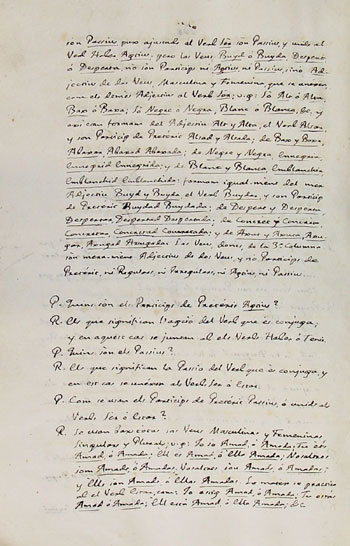 son Passius pero ajustad al Verb Ser son Passius, y unids el
Verb Haber Agsius, pero las Veus Buyd ô Buyda, Despert
ô Desperta, no son Particips ni Agsius, ni Passius, sino Ad-
jectius de dos Veus Masculina y Femenina, que se anexen,
com els demés Adjectius al Verb Ser; v.g. So Alt ô Alta,
Bax ô Baxa; So Negre ô Negra, Blanc ô Blanca, &c, y
axi com formam del Adjectiu Alt y Alta, el Verb Alsar,
y son Particip de Preterit Alsad y Alsada; de Bax y Baxa,
Abaxar Abaxad Abaxada; de Negre y Negra Ennegrir
Ennegrid Ennegrida; y de Blanc y Blanca, Emblanchir
Emblanchid Emblanchida; formam igualment del
Adjectiu Buyd y Buyda el Verb Buydar, y son Particip
de Preterit Buydad Buydada; de Despert y Desperta
Despertar Despertad Despertada; de
y de
Las Veus, dones, de la 3ª Columna
son mera-ment Adjectius de dos Veus, y no Particips de
Preterit, ni Regulars, ni Irregulars, ni Agsius, ni Passius.
P. Quins són els Particips de Preterit Agsius?
R. Els que significan l'agsió del Verb que es conjuga;
y en aquest cas se juntan al el Verb Haber ô Tenir.
P. Quins son els Passius?
R. Els que significan la Passió del Verb que es conjuga, y
en est cas se uneixen al Verb Ser ô Estar.
P. Com se usan els Particips de Preterit Passius, ô unids al
Verb Ser ô Estar?
R. Se usan baix estas Veus Masculinas y Femeninas,
Singular y Plural, v.g. Jo so Amad, ô Amada; Tu ets
Amad, ô Amada; Ell es Amad, ô Ella Amada; Nosaltres
som Amads, ô Amadas; Vosaltres sou Amads, ô Amadas;
y Ells son Amads ô Ellas Amadas. Lo mateix se practica
al el Verb Estar, com: Jo estig Amad, ô Amada; Tu estás
Amad ô Amada; Ell está Amad, ô Ella Amada; &c